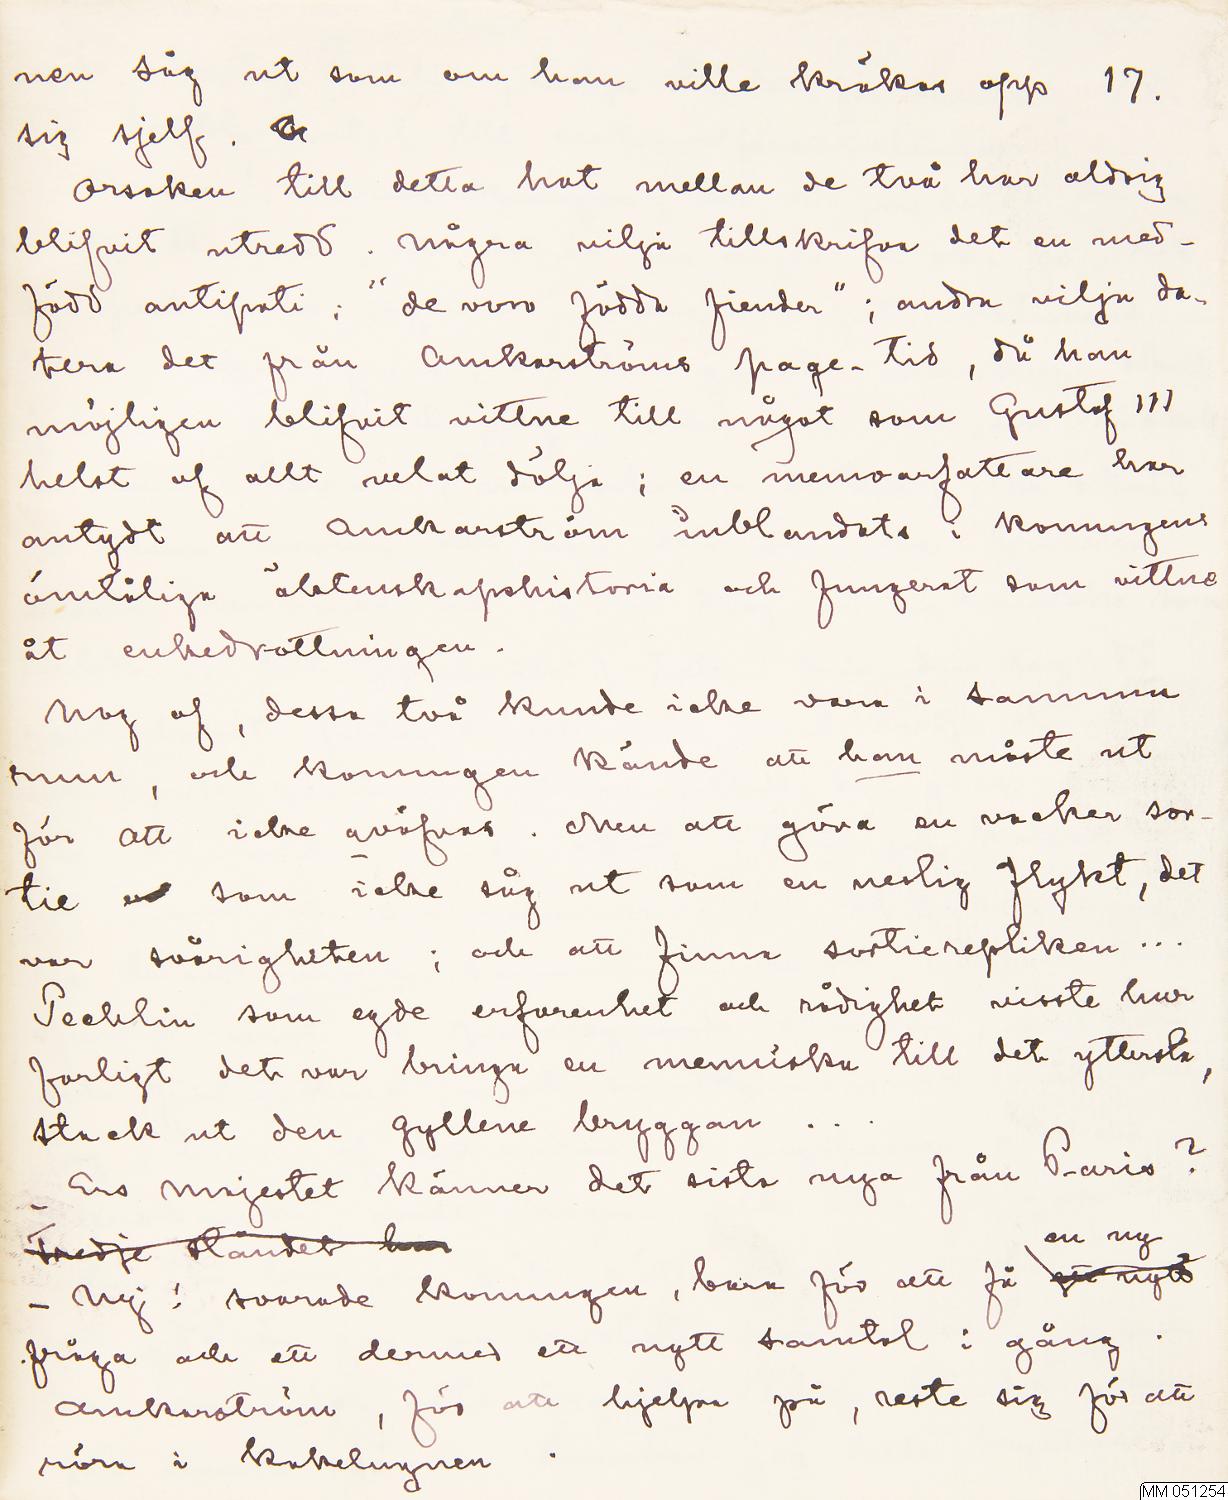 nen såg ut som om han ville kräkas opp 17.
sig sjelf.
Orsaken till detta hat mellan de två har aldrig
blifvit utredd. Några vilja tillskrifva det en med-
född antipati; "de voro födda fiender"; andra vilja da-
tera det från Amkarströms page-tid, då han
möjligen blifvit vittne till något som Gustaf III
helst af allt velat dölja; en memoarfattare har
antydt att Amkarström inblandats i konungens
ömtåliga äktenskapshistoria och fungerat som vittne
åt enkedrottningen.
Nog af, dessa två kunde icke vara i samma
rum, och konungen kände att han måste ut
för att icke qväfvas. Men att göra en vacker sor-
tie som icke såg ut som en neslig flykt, det
var svårigheten; och att finna sortierepliken ...
Pechlin som egde erfarenhet och rådighet visste hur
farligt det var bringa en menniska till det yttersta,
stack ut den gyllene bryggan ...
– Ers Majestet känner det sista nya från Paris?
Tredje ståndet har
en ny
– Nej! svarade konungen, bara för att få ett nytt
fråga och ett dermed ett nytt samtal i gång.
Amkarström, för att hjelpa på, reste sig för att
röra i kakelugnen.
MM 051254